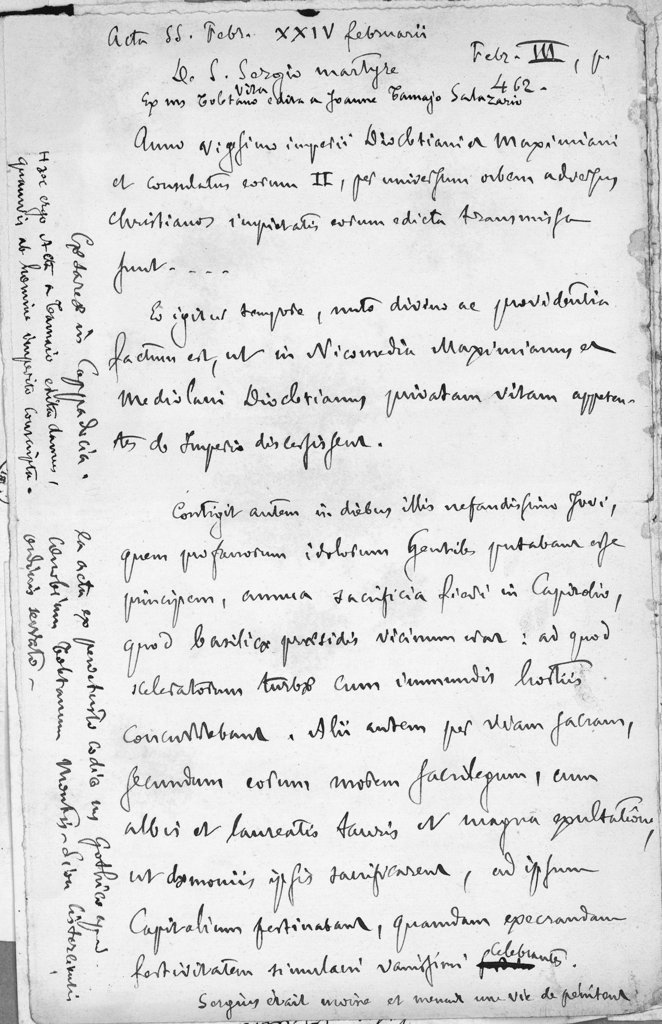 Acta SS. Febr. XXIV februarii
Febr. III, p.
462.
De S. Sergio martyre
vita
Ex ms Toletano edita a Joanne Tamajo Salazario
Anno vigesimo imperii Diocletiani et Maximiani
et consulatus eorum II, per universum orbem adversus
Christianos impietatis eorum edicta transmissa
sunt. . . .
Eo igitur tempore, nutu divino ac providentia
factum est, ut in Nicomedia Maximianus et
Mediolani Diocletianus privatam vitam appeten-
tes de Imperio discessissent.
Contigit autem in diebus illis nefandissimo Jovi,
quem profanorum idolorum Gentiles putabant esse
principem, annua sacrificia fieri in Capitolio,
quod basilicæ præsidis vicinum erat : ad quod
sceleratorum turbæ cum immundis hostiis
concurrebant. Alii autem per viam sacram,
secundum eorum morem sacrilegum, cum
albis et laureatis tauris et magna exultatione,
ut dæmoniis ipsis sacrificarent, ad ipsum
Capitolium festinabant, quamdam execrandam
festivitatem simulacri vanissimi celebrantes.
Sergius était moine et menait une vie de pénitent
Cæsareæ in Cappadocia.
Hæc ergo Acta a Tamaio edita damus,
quamvis ab homine imperito conscripta.
ea acta ex pervetusto codice ms Gothico apud
Cœnobium Toletanum Montis-Sion Cisterciensis
ordinis servato –